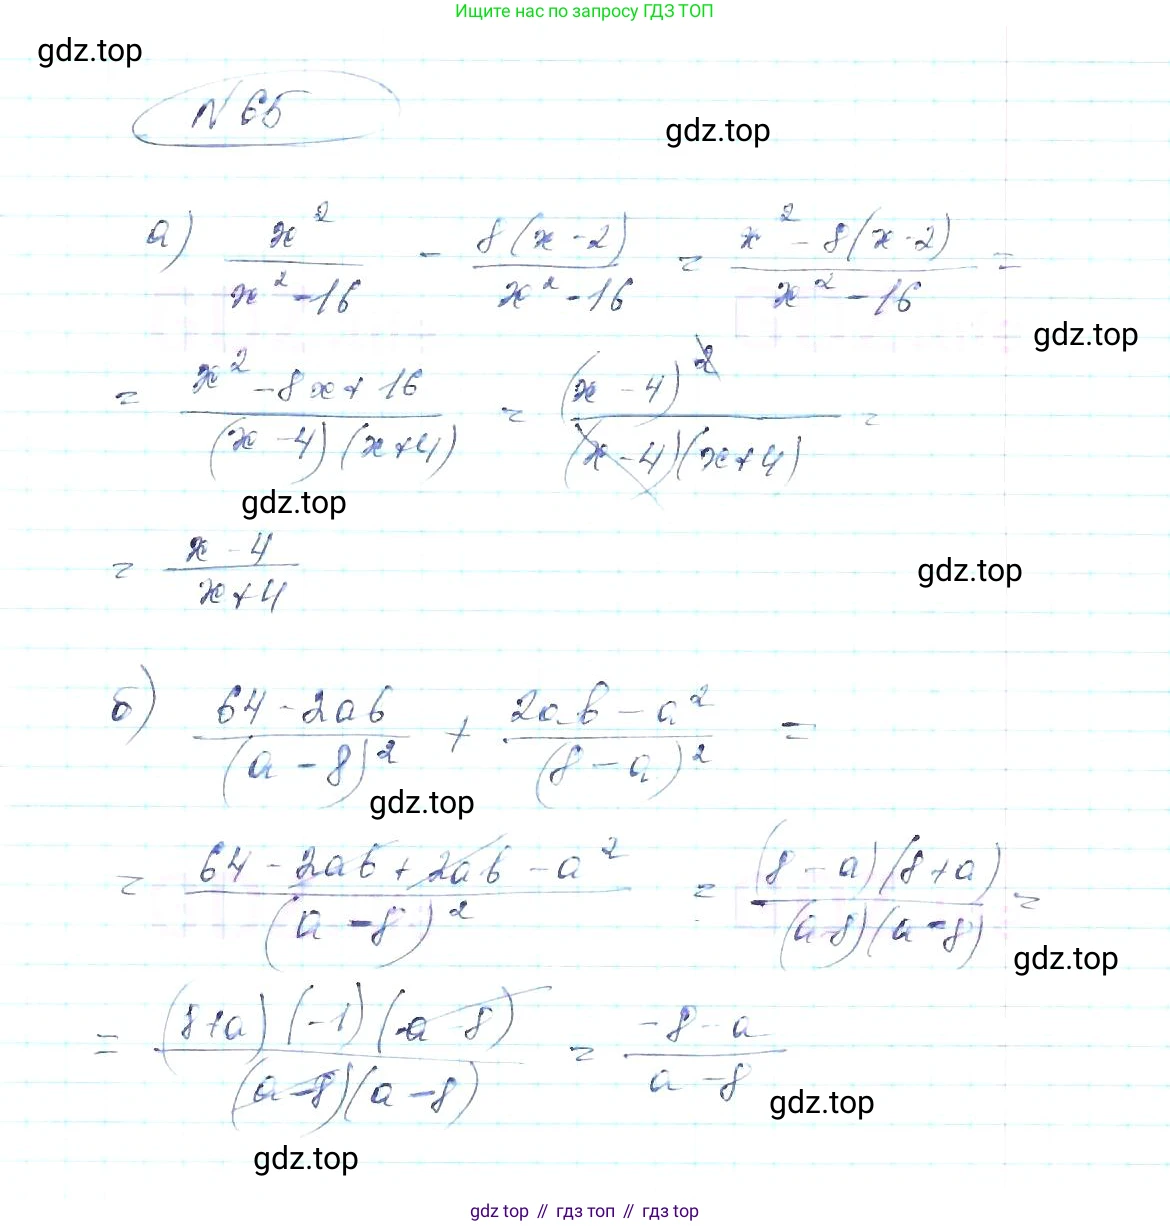 Ищите нас по запросу ГДЗ ТОП
gdz.top
N 65
gdz.top
а) x²/(x² - 16) - 8(x - 2)/(x² - 16) = (x² - 8(x - 2))/(x² - 16) =
gdz.top
= (x² - 8x + 16)/((x - 4)(x + 4)) = (x - 4)²/((x - 4)(x + 4)) =
gdz.top
= (x - 4)/(x + 4)
gdz.top
б) (64 - 2ab)/(a - 8)² + (2ab - a²)/(8 - a)² =
gdz.top
= (64 - 2ab + 2ab - a²)/(a - 8)² = ((8 - a)(8 + a))/((a - 8)(a - 8)) =
gdz.top
= ((8 + a)(-1)(a - 8))/((a - 8)(a - 8)) = (-8 - a)/(a - 8)
gdz.top
gdz.top
gdz top // гдз топ // gdz top